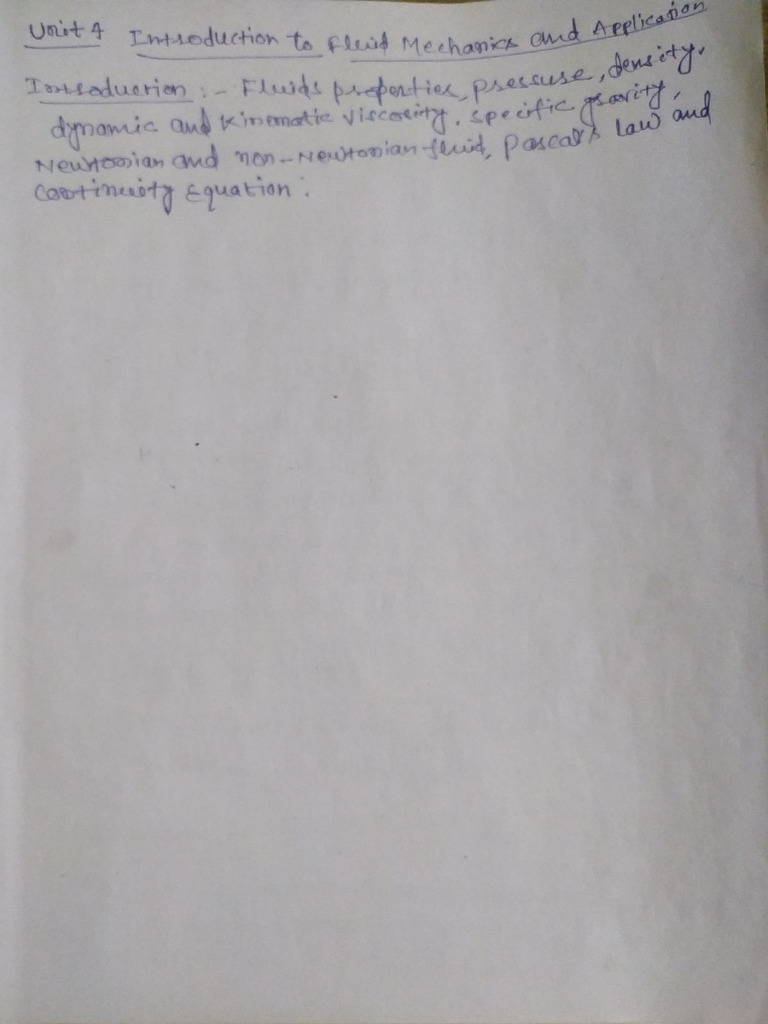 Unit 4 Introduction to Fluid Mechanics and Application
Introduction :- Fluids properties, pressure, density,
dynamic and Kinematic viscosity, specific gravity,
Newtonian and non-Newtonian fluid, Pascal's law and
Continuity Equation.